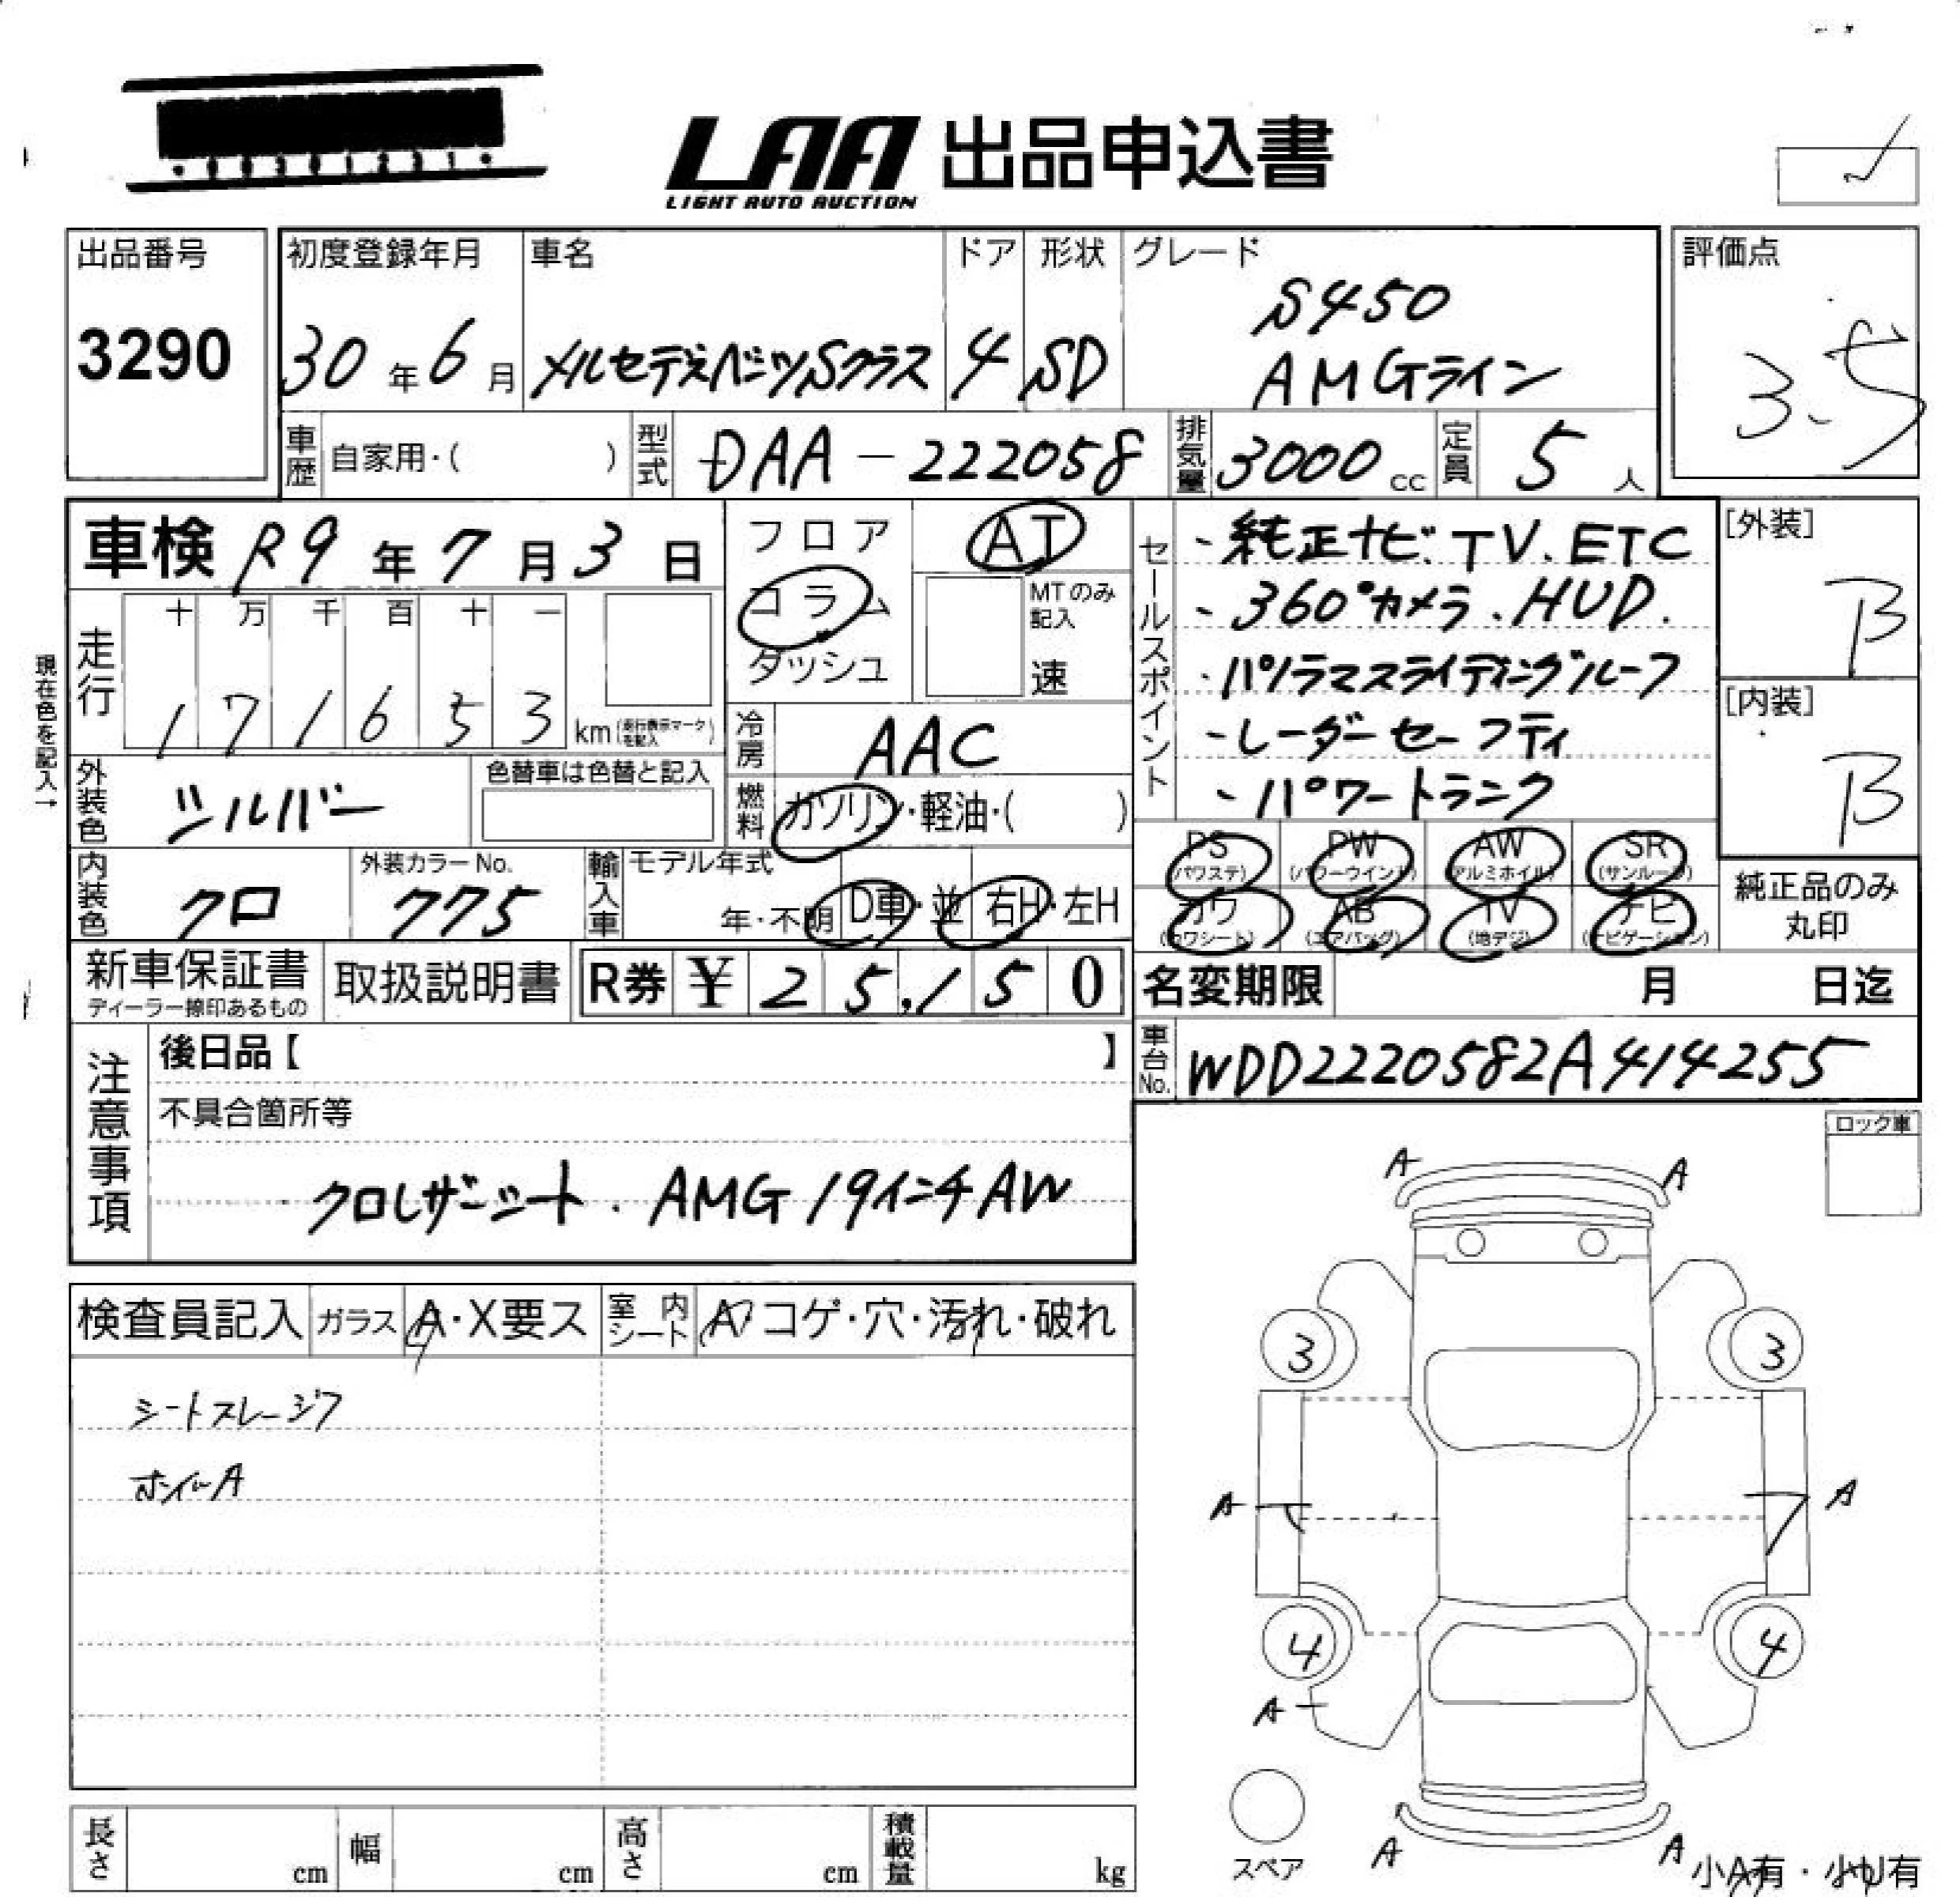 LAA 出品申込書
LIGHT AUTO AUCTION
出品番号
3290
初度登録年月
30年6月
車名
メルセデスベンツSクラス
ドア
4
形状
SD
グレード
S450
AMGライン
評価点
3.5
車歴 自家用・( )
型式 DAA-222058
排気量 3000 cc
定員 5 人
車検 R9年7月3日
フロア
コラム
ダッシュ
AT
MTのみ記入
速
セールスポイント
・純正ナビ.TV.ETC
・360°カメラ.HUD.
・パノラマスライディングルーフ
・レーダーセーフティ
・パワートランク
[外装]
B
[内装]
B
現在色を記入→
走行
十 万 千 百 十 一
1 7 1 6 5 3 km (走行表示マークを記入)
冷房 AAC
外装色 シルバー
色替車は色替と記入
燃料 ガソリン・軽油・( )
内装色 クロ
外装カラーNo.
775
輸入車 モデル年式
年・不明 D車・並 右H・左H
PS (パワステ)
PW (パワーウインド)
AW (アルミホイル)
SR (サンルーフ)
カワ (カワシート)
AB (エアバッグ)
TV (地デジ)
ナビ (ナビゲーション)
純正品のみ
丸印
新車保証書
ディーラー捺印あるもの
取扱説明書
R券 ¥ 2 5,1 5 0
名変期限 月 日迄
車台No. WDD2220582A414255
注意事項
後日品【 】
不具合箇所等
クロレザーシート. AMG 19インチAW
ロック車
検査員記入
ガラス A・X要ス
室内シート A コゲ・穴・汚れ・破れ
シートスレ
ホイルA
A A
3 3
A A
4 4
A
スペア
A A
小A有・小U有
長さ cm
幅 cm
高さ cm
積載量 kg